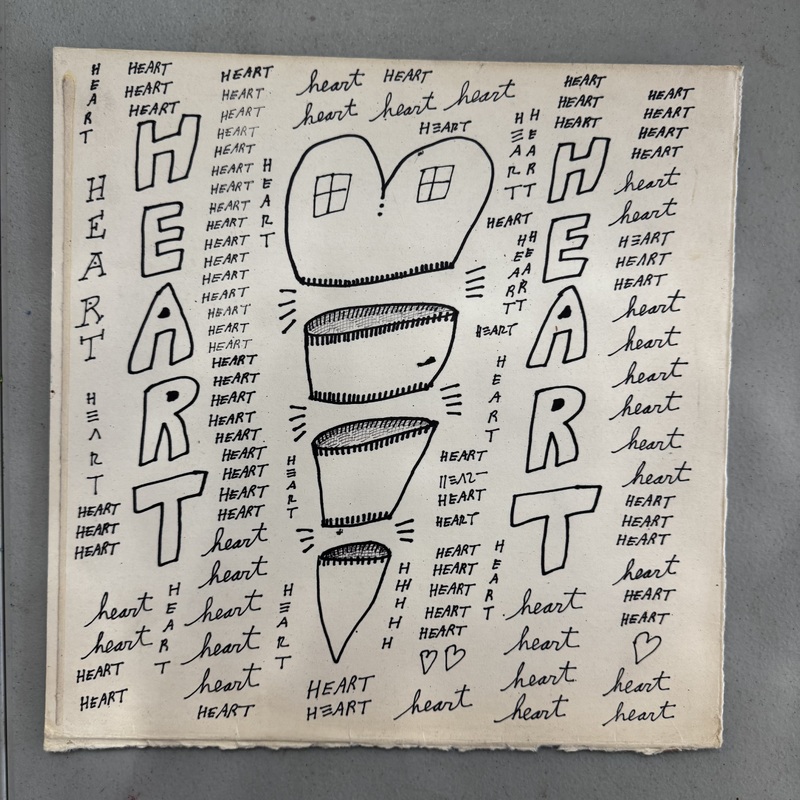 HEART
HEART
HEART
HEART
HEART
HEART
heart
heart
HEART
HEART
HEART
HEART
HEART
HEART
HEART
HEART
HEART
HEART
HEART
HEART
HEART
HEART
HEART
HEART
HEART
HEART
HEART
HEART
HEART
HEART
HEART
HEART
HEART
HEART
HEART
HEART
HEART
HEART
HEART
HEART
heart
heart
heart
heart
heart
HEART
HEART
HEART
HEART
heart HEART
heart heart heart
HEART
HEART
HEART
HEART
HEART
HEART
HEART
HEART
HEART
HEART
HEART
HEART
HEART
HEART
HEART
HEART
HEART
HHHHH
HEART
HEART
HEART
heart
HEART
HEART
HEART
HEART
heart
heart
heart
heart
HEART
HEART
HEART
HEART
heart
heart
HEART
HEART
HEART
heart
heart
heart
heart
heart
heart
HEART
HEART
HEART
heart
HEART
HEART
heart
heart